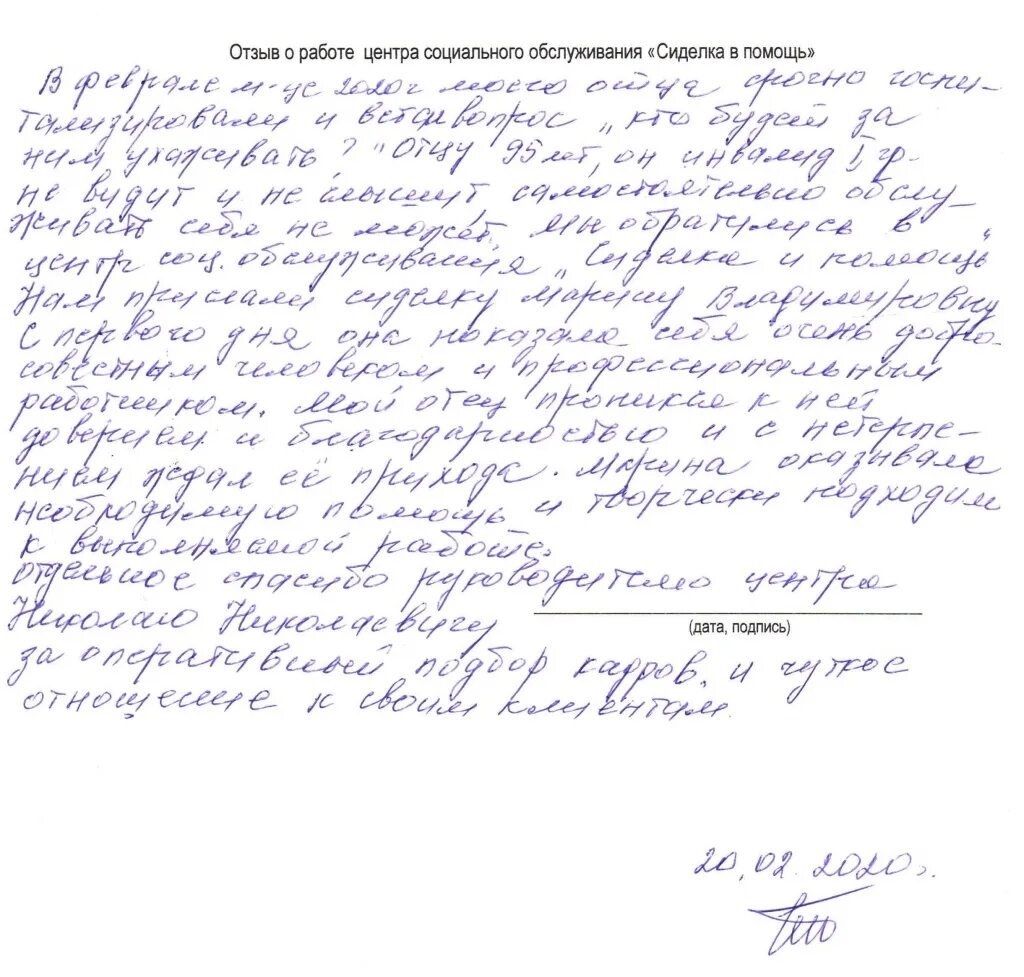 Отзыв о работе центра социального обслуживания «Сиделка в помощь»
В феврале м-це 2020г моего отца срочно госпи-
тализировали и встал вопрос „кто будет за
ним ухаживать?" Отцу 95 лет, он инвалид I гр.
не видит и не слышит, самостоятельно обслу-
живать себя не может. Мы обратились в
центр соц. обслуживания „Сиделка и помощь"
Нам прислали сиделку Марину Владимировну
С первого дня она показала себя очень добро-
совестным человеком и профессиональным
работником. Мой отец проникся к ней
доверием и благодарностью и с нетерпе-
нием ждал её прихода. Марина оказывала
необходимую помощь и творчески подходит
к выполняемой работе.
Отдельное спасибо руководителю центра
Николаю Николаевичу
(дата, подпись)
за оперативный подбор кадров, и чуткое
отношение к своим клиентам.
20.02.2020г.